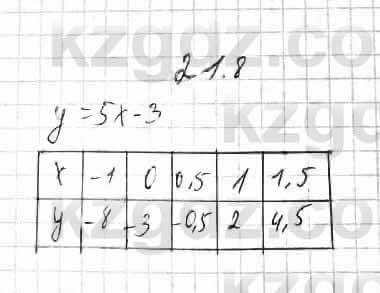 21.8
y = 5x - 3
x -1 0 0,5 1 1,5
y -8 -3 -0,5 2 4,5